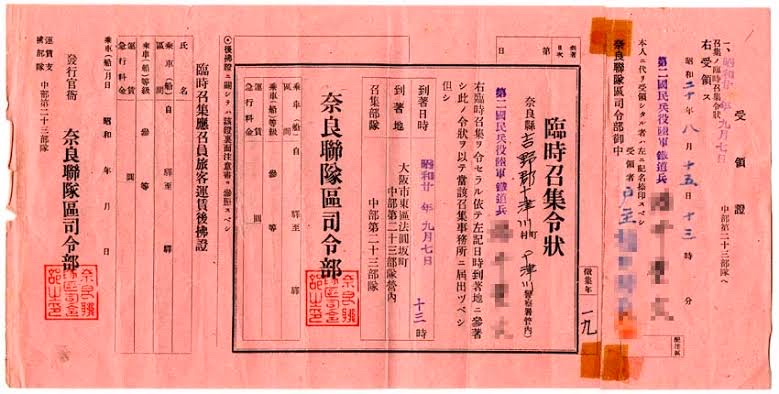 受領證
中部第二十三部隊へ
一、昭和廿年九月七日
召集ノ臨時召集令狀
右受領ス
昭和二十年八月十五日十三時 分
本人ニ代リ受領シタル者ハ左ニ記名捺印スベシ
第二國民兵役陸軍鐵道兵
受領者 戶主
奈良聯隊區司令部御中
配達區
徵集年 一九
臨時召集令狀
奈良縣吉野郡十津川村町
十津川警察署管內
第二國民兵役陸軍鐵道兵
右臨時召集ヲ令セラル依テ左記日時到著地ニ參著
シ此ノ令狀ヲ以テ當該召集事務所ニ届出ヅベシ
但シ
到著日時 昭和廿年九月七日 十三時
到著地 大阪市東區法圓坂町
中部第二十三部隊營內
召集部隊 中部第二十三部隊
奈良聯隊區司令部
乘車(船)自 驛至 驛
區間
乘車(船)等級 參等
運賃 圓
急行料金
參著日次 第 日
◉後拂證ニ關シテハ該證裏面注意書ヲ參照スベシ
臨時召集應召員旅客運賃後拂證
氏名
乘車(船)自 驛至 驛
區間
乘車(船)等級 參等
運賃 圓
急行料金
乘車(船)月日 昭和 年 月 日
發行官衙 奈良聯隊區司令部
運賃支拂部隊 中部第二十三部隊